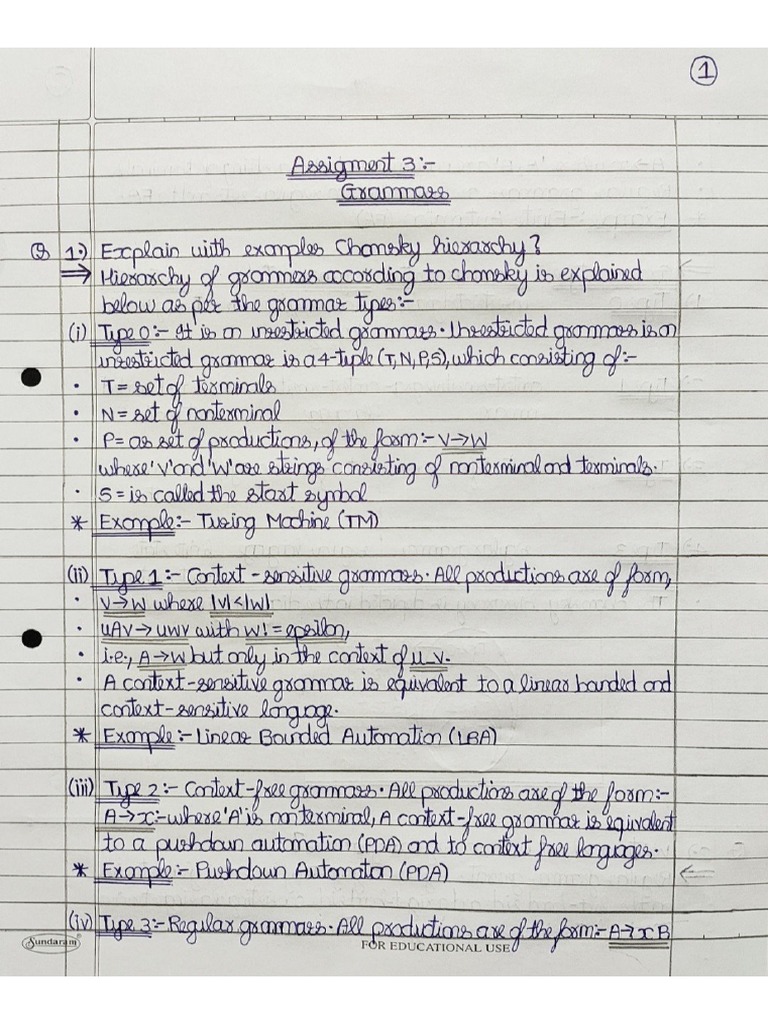 1
Assigment 3:-
Grammars
Q 1.) Explain with examples Chomsky hierarchy?
⇒ Hierarchy of grammers according to chomsky is explained
below as per the grammar types:-
(i) Type 0:- It is an unrestricted grammars. Unrestricted grammars is an
unrestricted grammar is a 4-tuple (T, N, P, S), which consisting of:-
• T = set of terminals
• N = set of nonterminal
• P = as set of productions, of the form:- V→W
where 'V' and 'W' are strings consisting of nonterminal and terminals.
• S = is called the start symbol
* Example:- Turing Machine (TM)
(ii) Type 1:- Context-sensitive grammars. All productions are of form,
• V→W where |V|<|W|
• uAv→uwv with w!=epsilon,
• i.e., A→W but only in the context of u_v.
• A context-sensitive grammar is equivalent to a linear bounded and
context-sensitive language.
* Example:- Linear Bounded Automation (LBA)
(iii) Type 2:- Context-free grammars. All productions are of the form:-
A→x:-where 'A' is nonterminal, A context-free grammar is equivalent
to a pushdown automation (PDA) and to context free languages.
* Example:- Pushdown Automaton (PDA)
(iv) Type 3:- Regular grammars. All productions are of the form:- A→xB
Sundaram
FOR EDUCATIONAL USE